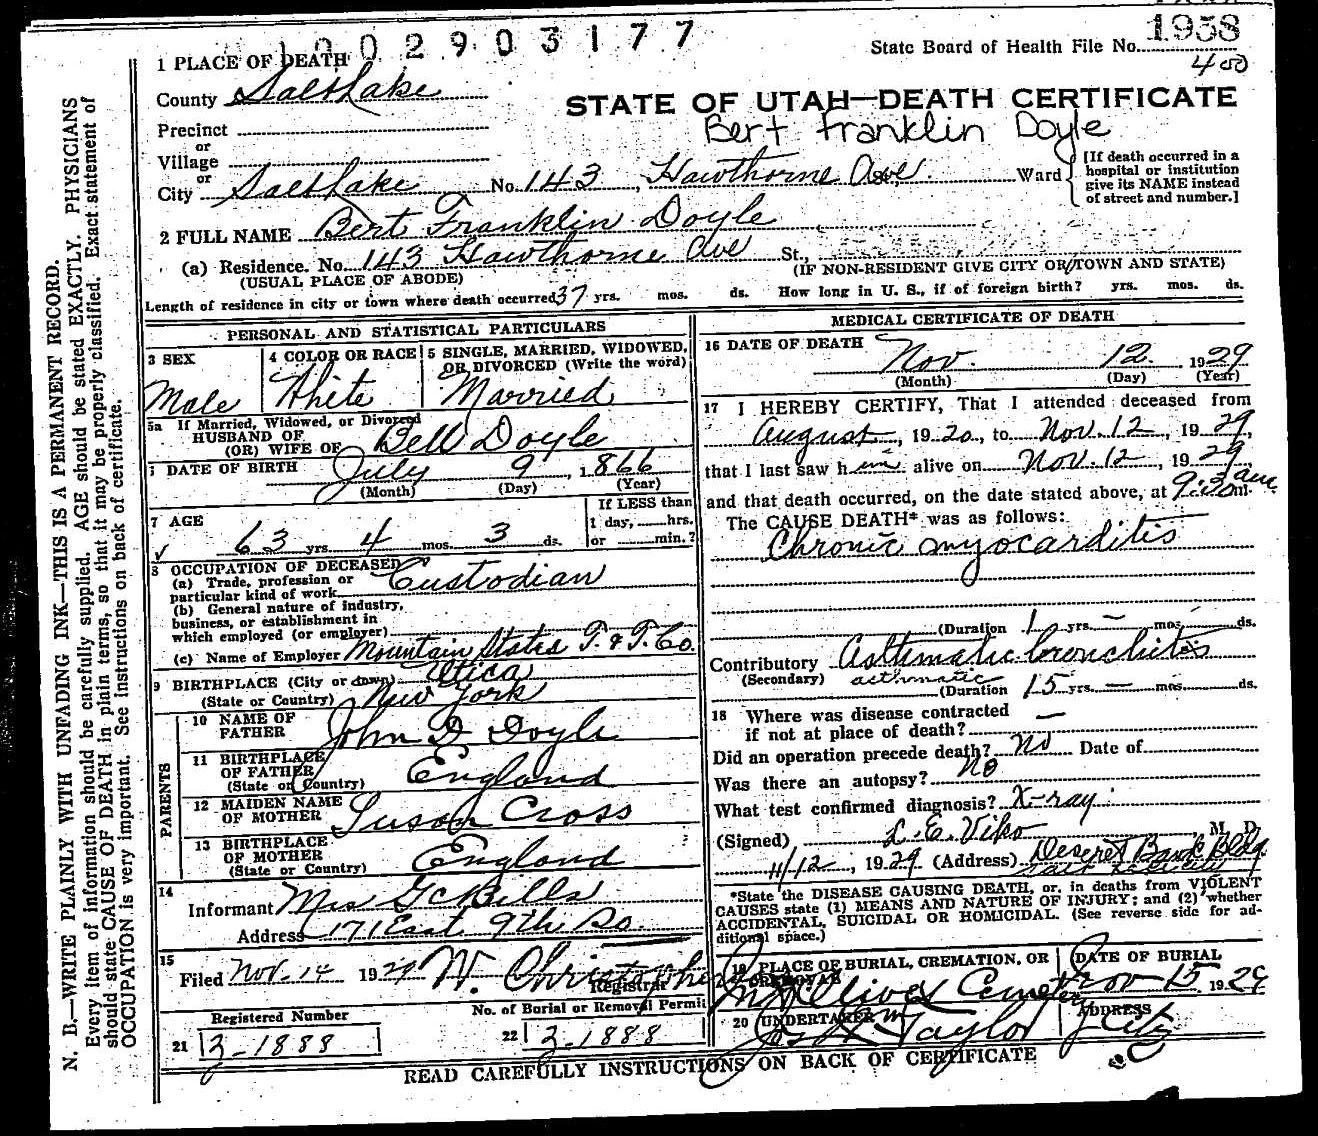 1002903177
1938
State Board of Health File No.
400
1 PLACE OF DEATH
County Salt Lake
STATE OF UTAH—DEATH CERTIFICATE
Bert Franklin Doyle
Precinct
or
Village
or
City Salt Lake No. 143, Hawthorne Ave. Ward
[If death occurred in a
hospital or institution
give its NAME instead
of street and number.]
2 FULL NAME Bert Franklin Doyle
(a) Residence. No. 143 Hawthorne Ave St.,
(USUAL PLACE OF ABODE) (IF NON-RESIDENT GIVE CITY OR TOWN AND STATE)
Length of residence in city or town where death occurred 37 yrs. mos. ds. How long in U. S., if of foreign birth? yrs. mos. ds.
PERSONAL AND STATISTICAL PARTICULARS
3 SEX
Male
4 COLOR OR RACE
White
5 SINGLE, MARRIED, WIDOWED,
OR DIVORCED (Write the word)
Married
5a If Married, Widowed, or Divorced
HUSBAND OF
(OR) WIFE OF Bell Doyle
DATE OF BIRTH July 9, 1866
(Month) (Day) (Year)
7 AGE
63 yrs. 4 mos. 3 ds.
If LESS than
1 day, hrs.
or min.?
8 OCCUPATION OF DECEASED
(a) Trade, profession or
particular kind of work Custodian
(b) General nature of industry,
business, or establishment in
which employed (or employer)
(c) Name of Employer Mountain States T. & T. Co.
9 BIRTHPLACE (City or town) Utica
(State or Country) New York
PARENTS
10 NAME OF
FATHER John D Doyle
11 BIRTHPLACE
OF FATHER
(State or Country) England
12 MAIDEN NAME
OF MOTHER Susan Cross
13 BIRTHPLACE
OF MOTHER
(State or Country) England
14
Informant Mrs G C Bills
Address 171 East 9th So.
15
Filed Nov. 14 1929 W. Christopherson
Registrar
Registered Number
No. of Burial or Removal Permit
21 3-1888
22 3-1888
MEDICAL CERTIFICATE OF DEATH
16 DATE OF DEATH Nov. 12. 1929
(Month) (Day) (Year)
17 I HEREBY CERTIFY, That I attended deceased from
August, 1920, to Nov. 12, 1929,
that I last saw him alive on Nov. 12, 1929
and that death occurred, on the date stated above, at 9:30 am.
The CAUSE DEATH* was as follows:
Chronic myocarditis
(Duration 1 yrs. — mos. ds.
Contributory Asthmatic bronchitis
(Secondary) asthmatic
(Duration 15 yrs. — mos. ds.
18 Where was disease contracted
if not at place of death? —
Did an operation precede death? No Date of
Was there an autopsy? No
What test confirmed diagnosis? X-ray
(Signed) L. E. Viko, M. D.
11/12, 1929 (Address) Deseret Bank Bldg.
*State the DISEASE CAUSING DEATH, or, in deaths from VIOLENT
CAUSES state (1) MEANS AND NATURE OF INJURY; and (2) whether
ACCIDENTAL, SUICIDAL OR HOMICIDAL. (See reverse side for ad-
ditional space.)
19 PLACE OF BURIAL, CREMATION, OR
REMOVAL
Mt Olivet Cemetery
DATE OF BURIAL
Nov 15 1929
20 UNDERTAKER
Taylor
ADDRESS
City
READ CAREFULLY INSTRUCTIONS ON BACK OF CERTIFICATE
N. B.—WRITE PLAINLY WITH UNFADING INK—THIS IS A PERMANENT RECORD.
Every item of information should be carefully supplied. AGE should be stated EXACTLY. PHYSICIANS
should state CAUSE OF DEATH in plain terms, so that it may be properly classified. Exact statement of
OCCUPATION is very important. See instructions on back of certificate.